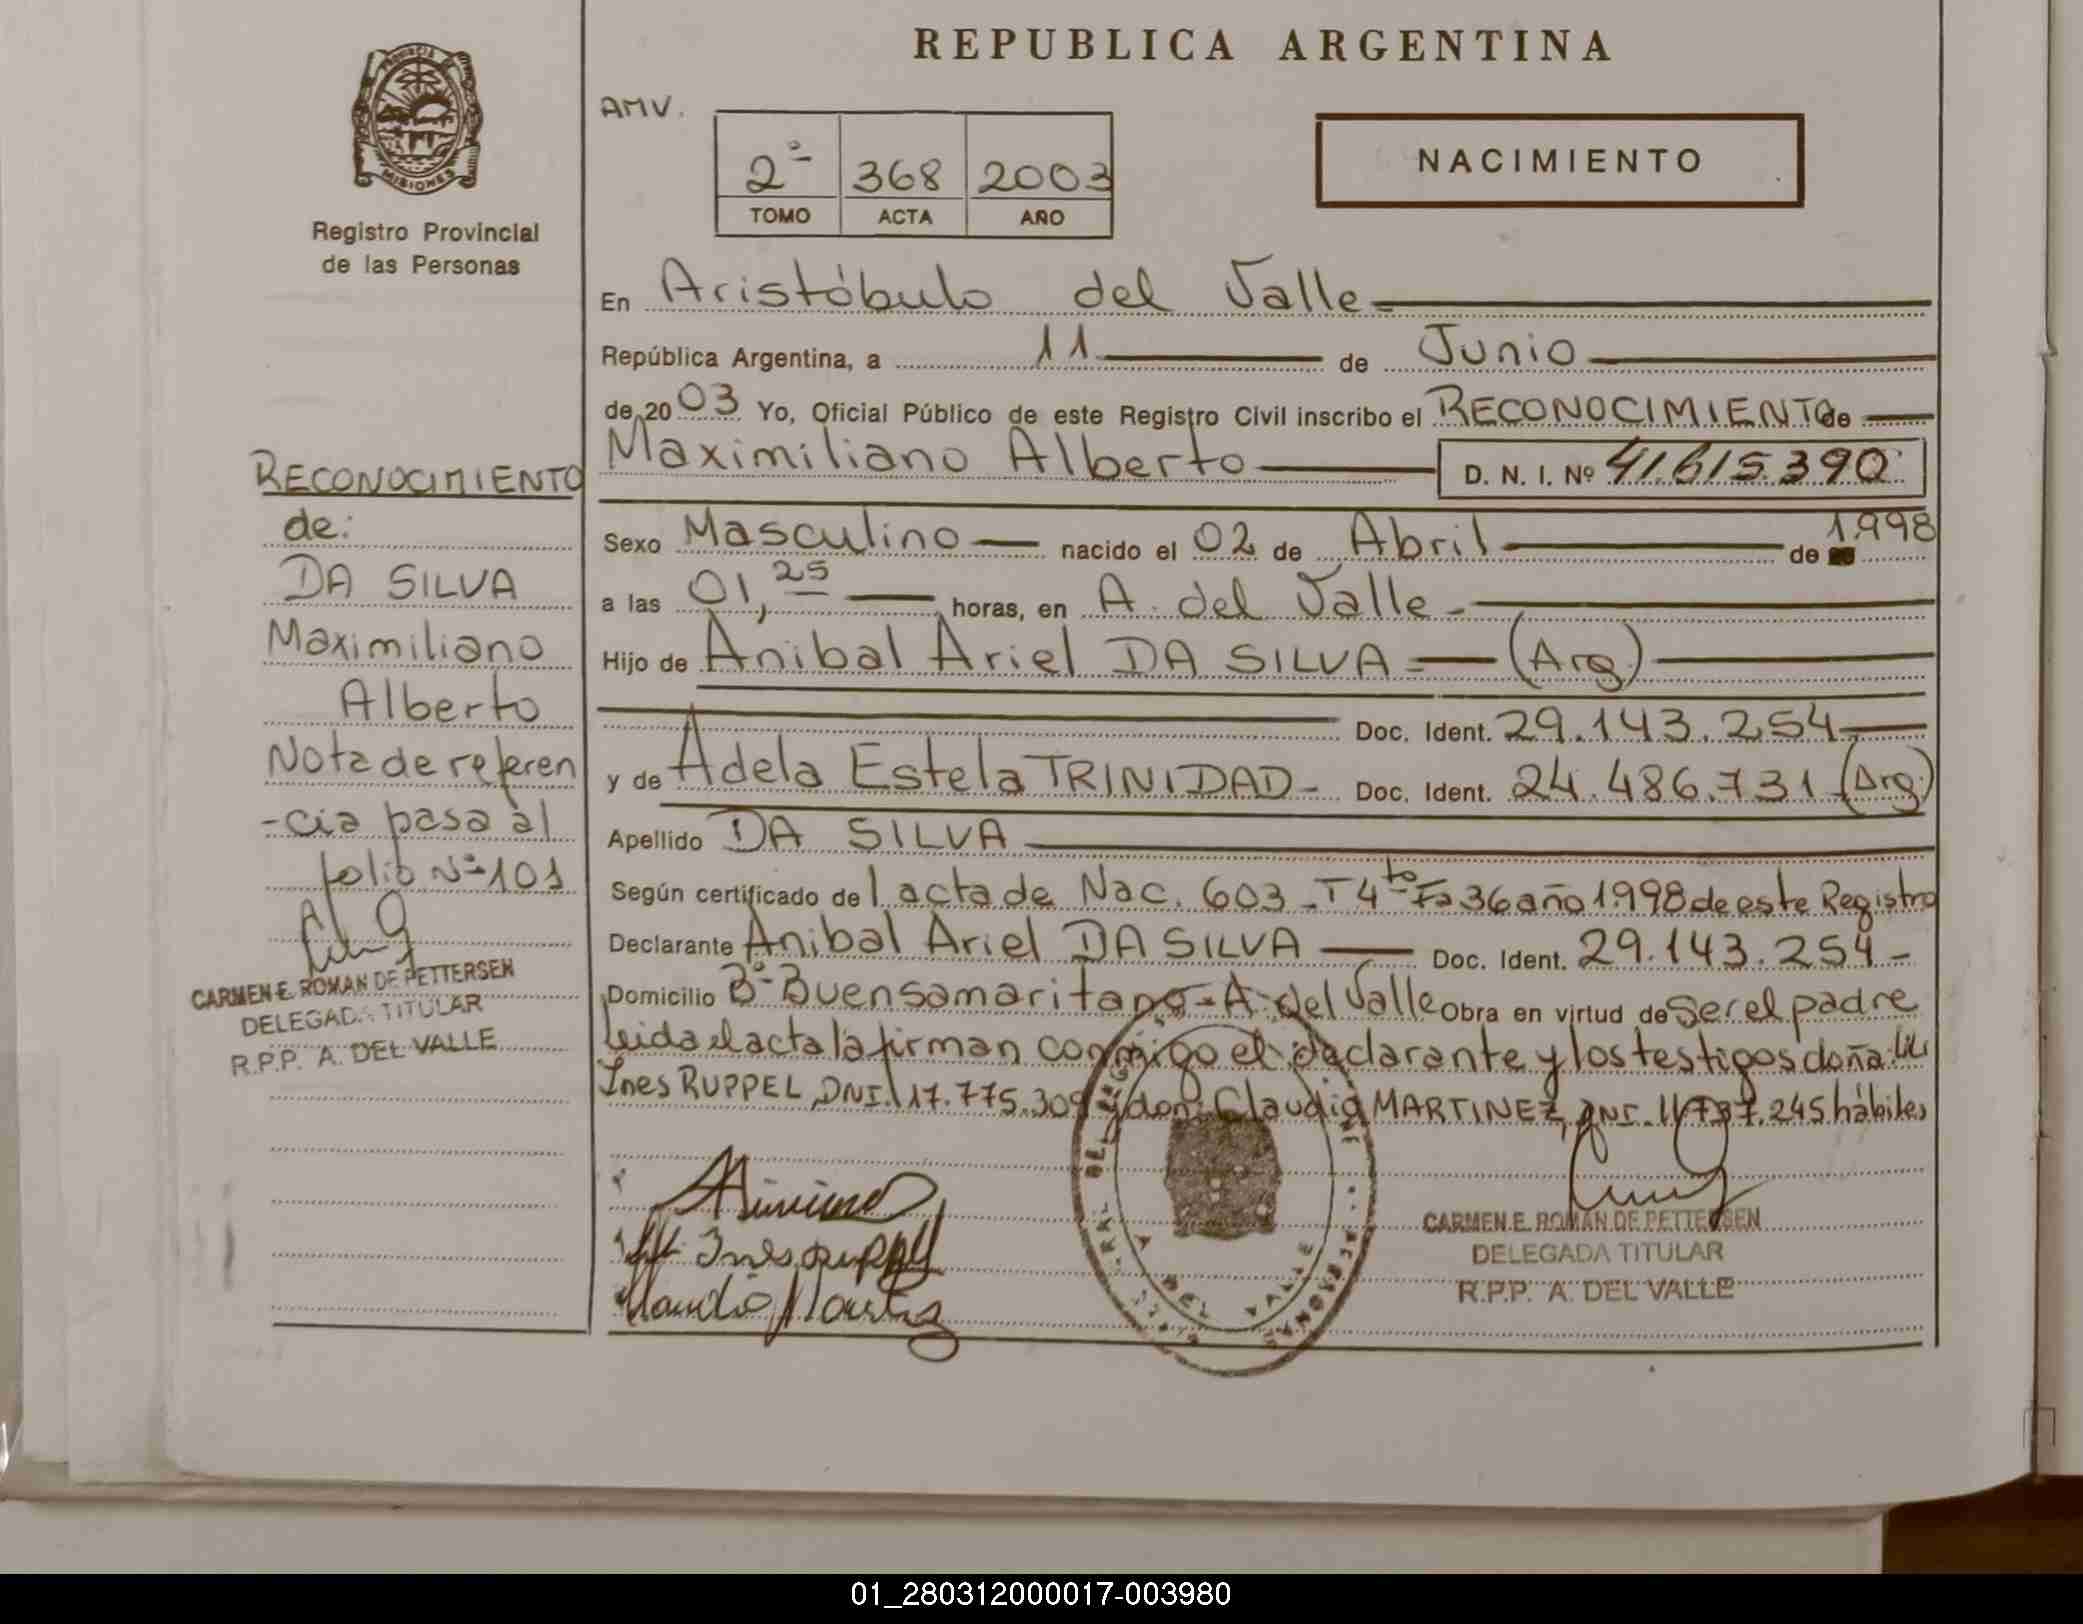 REPUBLICA ARGENTINA
PROVINCIA DE
MISIONES
Registro Provincial
de las Personas
AMV.
2º 368 2003
TOMO ACTA AÑO
NACIMIENTO
En Aristóbulo del Valle
República Argentina, a 11 de Junio
de 2003 Yo, Oficial Público de este Registro Civil inscribo el RECONOCIMIENTO de
Maximiliano Alberto D. N. I. Nº 41.615.390
Sexo Masculino nacido el 02 de Abril de 1.998
a las 01,25 horas, en A. del Valle
Hijo de Anibal Ariel DA SILVA (Arg.)
Doc. Ident. 29.143.254
y de Adela Estela TRINIDAD Doc. Ident. 24.486.731 (Arg.)
Apellido DA SILVA
Según certificado de l acta de Nac. 603 T 4to Fº 36 año 1.998 de este Registro
Declarante Anibal Ariel DA SILVA Doc. Ident. 29.143.254
Domicilio Bº Buen samaritano - A. del Valle Obra en virtud de Ser el padre
leida el acta la firman conmigo el declarante y los testigos doña:
Ines RUPPEL, DNI. 17.775.309 y don: Claudio MARTINEZ, DNI. 11.737.245 hábiles
RECONOCIMIENTO
de:
DA SILVA
Maximiliano
Alberto
Nota de referen
-cia pasa al
folio Nº 101
CARMEN E. ROMAN DE PETTERSEN
DELEGADA TITULAR
R.P.P. A. DEL VALLE
Ines Ruppel
Claudio Martinez
A DEL VALLE
PERSONAS
CARMEN E. ROMAN DE PETTERSEN
DELEGADA TITULAR
R.P.P. A. DEL VALLE
01_280312000017-003980